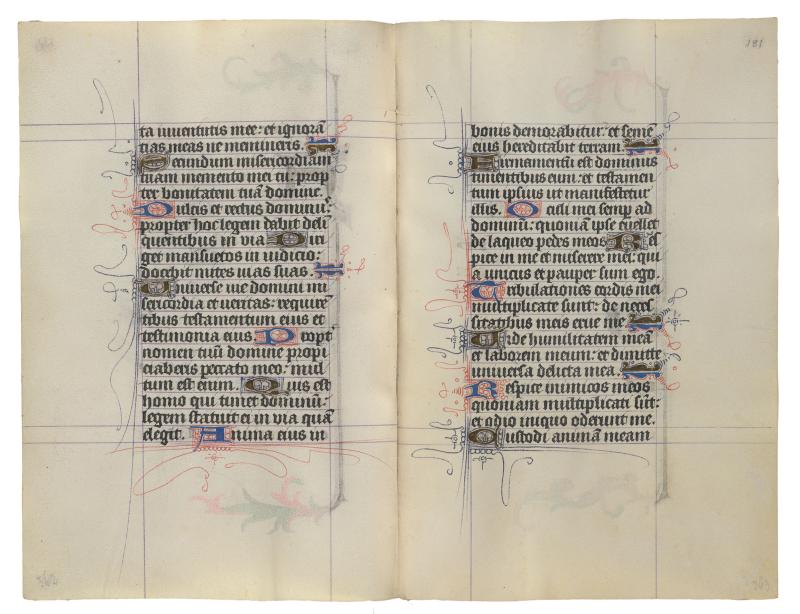 ta iuventutis mee: et ignorā
tias meas ne memineris.
Secundum misericordiam
tuam memento mei tu: prop
ter bonitatem tuā domine.
Dulcis et rectus dominus:
propter hoc legem dabit deli
quentibus in via Diri
get mansuetos in iudicio:
docebit mites vias suas.
Universe vie domini mi
sericordia et veritas: requirē
tibus testamentum eius et
testimonia eius. Propt
nomen tuū domine propi
ciaberis peccato meo: mul
tum est enim. Quis est
homo qui timet dominū:
legem statuit ei in via quā
elegit. Anima eius in
181
bonis demorabitur: et semē
eius hereditabit terram
Firmamentū est dominus
timentibus eum: et testamen
tum ipsius ut manifestetur
illis. Oculi mei semp ad
dominū: quoniam ipse evellet
de laqueo pedes meos Res
pice in me et miserere mei: qui
a unicus et pauper sum ego.
Tribulationes cordis mei
multiplicate sunt: de neces
sitatibus meis erue me
Vide humilitatem meā
et laborem meum: et dimitte
universa delicta mea.
Respice inimicos meos
quoniam multiplicati sūt:
et odio iniquo oderunt me.
Custodi animā meam